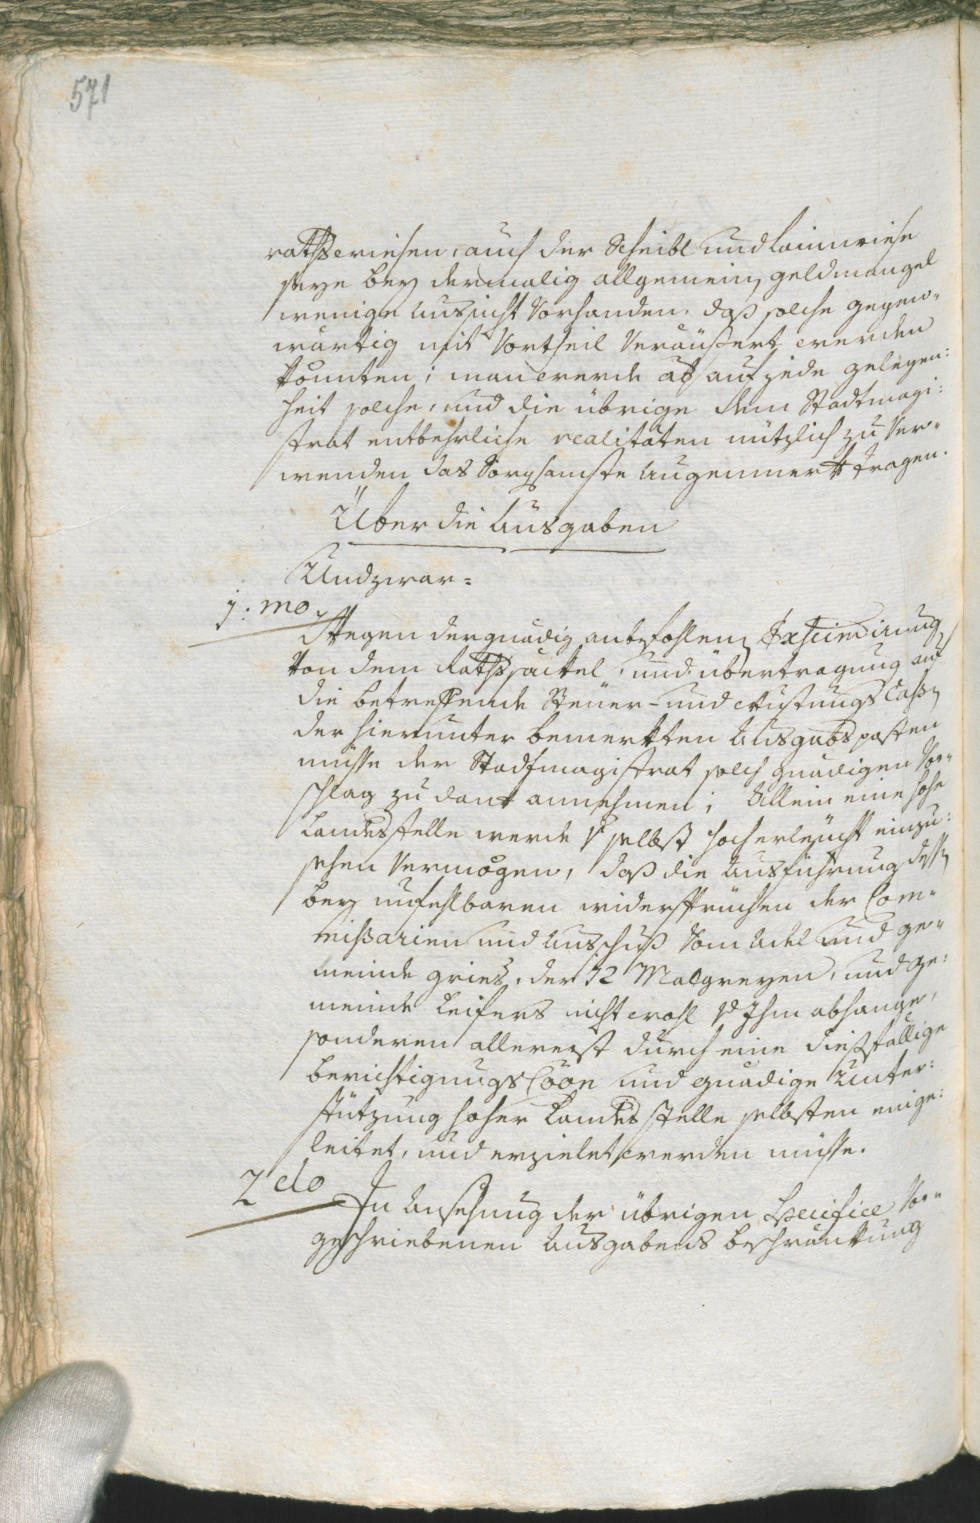 571
rathswiesen, auch der Scheibl und Laimwiese
seye bey dermalig allgemeinen geldmangel
wenige Aussicht Vorhanden, daß solche gegen-
wärtig mit Vortheil Veräußert werden
könnten; man werde ab auf jede gelegen:
heit solche, und die übrige dem Stadtmagi:
strat entbehrliche realitäten nützlich zu Ver-
wenden das Sorgsamste Augenmerk tragen.
Über die Ausgaben
Und zwar =
1:mo
Wegen der gnädig anbefohlenen Exscindirung
Von dem Rathssäckel, und übertragung auf
die betreffende Steuer- und Rüstungs Cassen
der hierunter bemerkten Ausgabsposten
müsse der Stadtmagistrat solch gnädigen Vor-
schlag zu dank annehmen; Allein eine hohe
Landesstelle werde selbst hocherleücht einzu:
sehen Vermögen, daß die Ausführung dessen
bey unfehlbaren widersprüchen der Com-
missarien und Ausschuß Vom Adel und ge-
meinde Gries, der 12 Malgreyen, und ge:
meinde Leifers nicht wohl Ihm abhange,
sonderen allererst durch eine dießfällige
berichtigungs Cöon und gnädige Unter:
stützung hoher Landesstelle selbsten einge:
leitet, und erzielet werden müsse.
2do
In Ansehung der übrigen Specifice Vor-
geschriebenen Ausgabens beschränkung